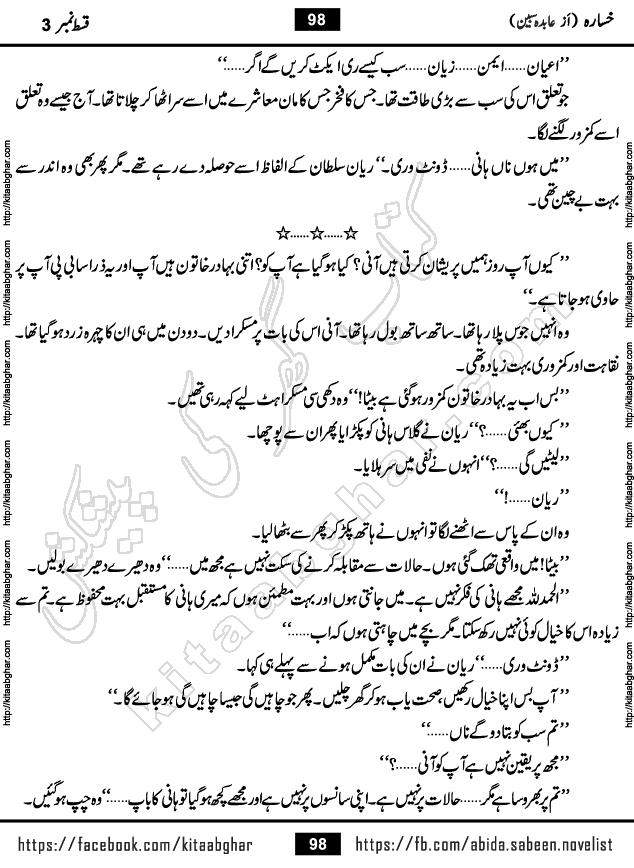 خسارہ (از عابدہ سبین)
98
قسط نمبر 3
’’اعیان……ایمن……زیان……سب کیسے ری ایکٹ کریں گے اگر……‘‘
جو تعلق اس کی سب سے بڑی طاقت تھا۔ جس کا فخر جس کا مان معاشرے میں اسے سر اٹھا کر چلاتا تھا۔ آج جیسے وہ تعلق
اسے کمزور لگنے لگا۔
’’میں ہوں ناں ہانی……ڈونٹ وری۔‘‘ ریان سلطان کے الفاظ اسے حوصلہ دے رہے تھے۔ مگر پھر بھی وہ اندر سے
بہت بے چین تھی۔
☆……☆……☆
’’کیوں آپ روز ہمیں پریشان کرتی ہیں آنی؟ کیا ہو گیا ہے آپ کو؟ اتنی بہادر خاتون ہیں آپ اور یہ ذرا سا بی پی آپ پر
حاوی ہو جاتا ہے۔‘‘
وہ انہیں جوس پلا رہا تھا۔ ساتھ ساتھ بول رہا تھا۔ آنی اس کی بات پر مسکرا دیں۔ دو دن میں ہی ان کا چہرہ زرد ہو گیا تھا۔
نقاہت اور کمزوری بہت زیادہ تھی۔
’’بس اب یہ بہادر خاتون کمزور ہو گئی ہے بیٹا!‘‘ وہ دکھی سی مسکراہٹ لیے کہہ رہی تھیں۔
’’کیوں بھئی……؟‘‘ ریان نے گلاس ہانی کو پکڑایا پھر ان سے پوچھا۔
’’لیٹیں گی……؟‘‘ انہوں نے نفی میں سر ہلایا۔
’’ریان……!‘‘
وہ ان کے پاس سے اٹھنے لگا تو انہوں نے ہاتھ پکڑ کر پھر سے بٹھا لیا۔
’’بیٹا! میں واقعی تھک گئی ہوں۔ حالات سے مقابلہ کرنے کی سکت نہیں ہے مجھ میں……‘‘ وہ دھیرے دھیرے بولیں۔
’’الحمدللہ مجھے ہانی کی فکر نہیں ہے۔ میں جانتی ہوں اور بہت مطمئن ہوں کہ میری ہانی کا مستقبل بہت محفوظ ہے۔ تم سے
زیادہ اس کا خیال کوئی نہیں رکھ سکتا۔ مگر بچے میں چاہتی ہوں کہ اب……‘‘
’’ڈونٹ وری……‘‘ ریان نے ان کی بات مکمل ہونے سے پہلے ہی کہا۔
’’آپ بس اپنا خیال رکھیں، صحت یاب ہو کر گھر چلیں۔ پھر جو چاہیں گی جیسا چاہیں گی ہو جائے گا۔‘‘
’’تم سب کو بتا دو گے ناں……‘‘
’’مجھ پر یقین نہیں ہے آپ کو آنی……؟‘‘
’’تم پر بھروسا ہے مگر……حالات پر نہیں ہے۔ اپنی سانسوں پر نہیں ہے اور مجھے کچھ ہو گیا تو ہانی کا باپ……‘‘ وہ چپ ہو گئیں۔
http://kitaabghar.com http://kitaabghar.com http://kitaabghar.com http://kitaabghar.com http://kitaabghar.com http://kitaabghar.com
http://kitaabghar.com http://kitaabghar.com http://kitaabghar.com http://kitaabghar.com http://kitaabghar.com http://kitaabghar.com
کتاب گھر کی پیشکش
kitaabghar.com
https://facebook.com/kitaabghar
98
https://fb.com/abida.sabeen.novelist